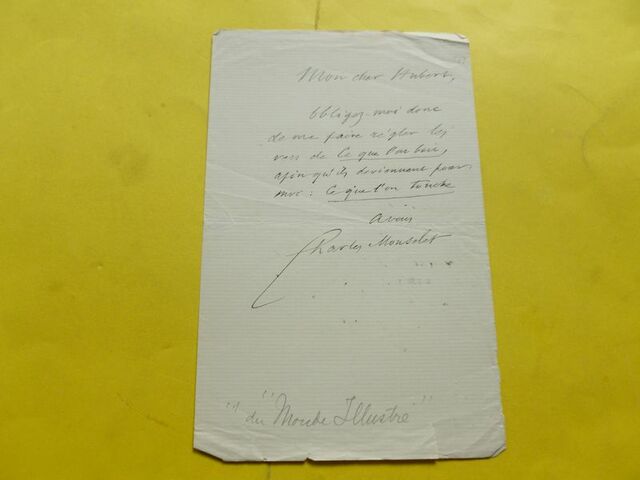 Mon cher Hubert,
Obligez-moi donc
de me faire régler les
vers de Ce que l'on boit,
afin qu'ils deviennent pour
moi : Ce que l'on touche
à vous
Charles Monselet
" du Monde Illustré "